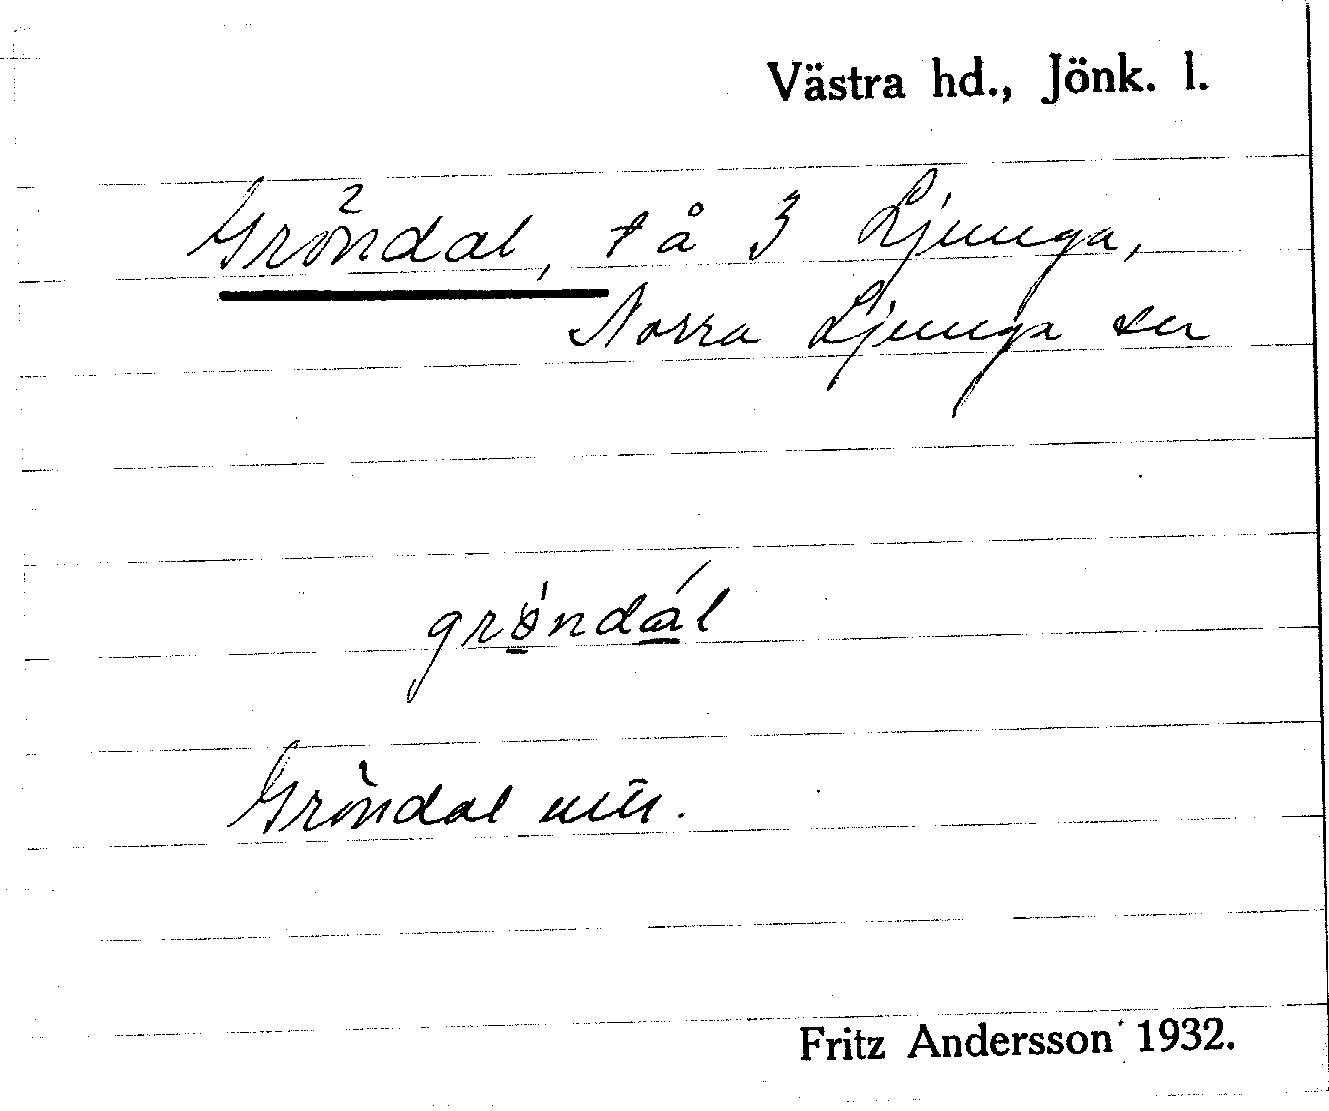 Västra hd., Jönk. l.
Gröndal, t å 3 Ljunga,
Norra Ljunga sn
grøndál
Gröndal
Fritz Andersson 1932.